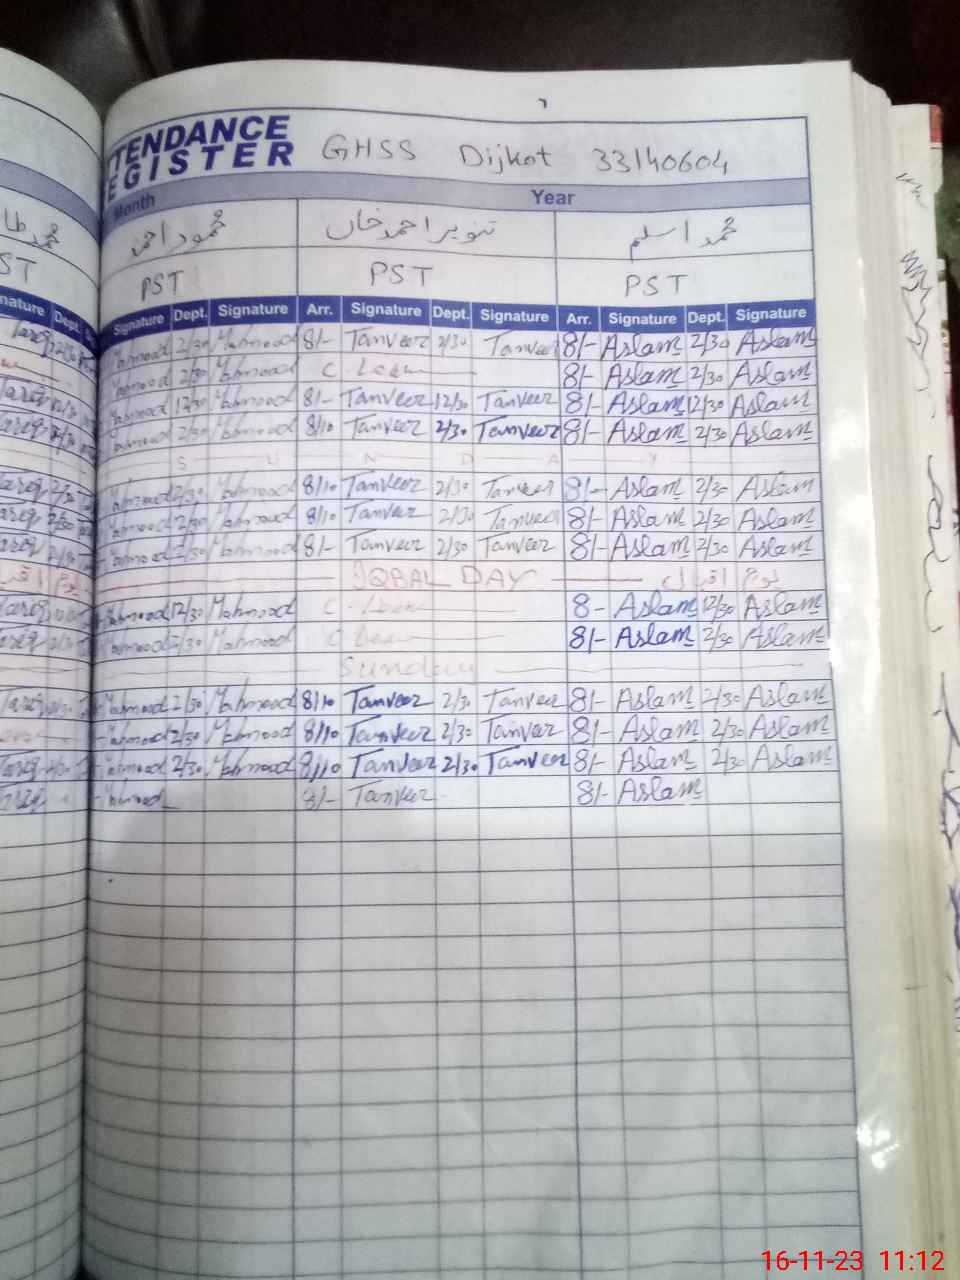 ATTENDANCE
REGISTER GHSS Dijkot 33140604
Month Year
محمود احمد تنویر احمد خاں محمد اسلم
PST PST PST
Signature Dept. Signature Arr. Signature Dept. Signature Arr. Signature Dept. Signature
Mahmood 2/30 Mahmood 8/- Tanveer 2/30 Tanveer 8/- Aslam 2/30 Aslam
Mahmood 2/30 Mahmood C. Leave 8/- Aslam 2/30 Aslam
Mahmood 12/30 Mahmood 8/- Tanveer 12/30 Tanveer 8/- Aslam 12/30 Aslam
Mahmood 2/30 Mahmood 8/10 Tanveer 2/30 Tanveer 8/- Aslam 2/30 Aslam
S U N D A Y
Mahmood 2/30 Mahmood 8/10 Tanveer 2/30 Tanveer 8/- Aslam 2/30 Aslam
Mahmood 2/30 Mahmood 8/10 Tanveer 2/30 Tanveer 8/- Aslam 2/30 Aslam
Mahmood 2/30 Mahmood 8/- Tanveer 2/30 Tanveer 8/- Aslam 2/30 Aslam
IQBAL DAY یوم اقبال
Mahmood 12/30 Mahmood C. Leave 8- Aslam 12/30 Aslam
Mahmood 2/30 Mahmood C Leave 8/- Aslam 2/30 Aslam
Sunday
Mahmood 2/30 Mahmood 8/10 Tanveer 2/30 Tanveer 8/- Aslam 2/30 Aslam
Mahmood 2/30 Mahmood 8/10 Tanveer 2/30 Tanveer 8/- Aslam 2/30 Aslam
Mahmood 2/30 Mahmood 8/10 Tanveer 2/30 Tanveer 8/- Aslam 2/30 Aslam
Mahmood 8/- Tanveer 8/- Aslam
16-11-23 11:12